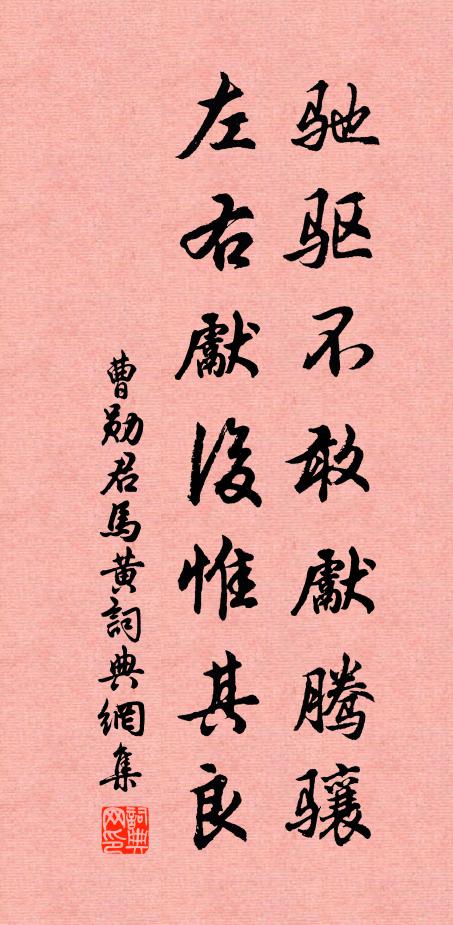 驰驱不敢献腾骧
左右献后惟其良
曹勋君马黄词典网集
词典网印